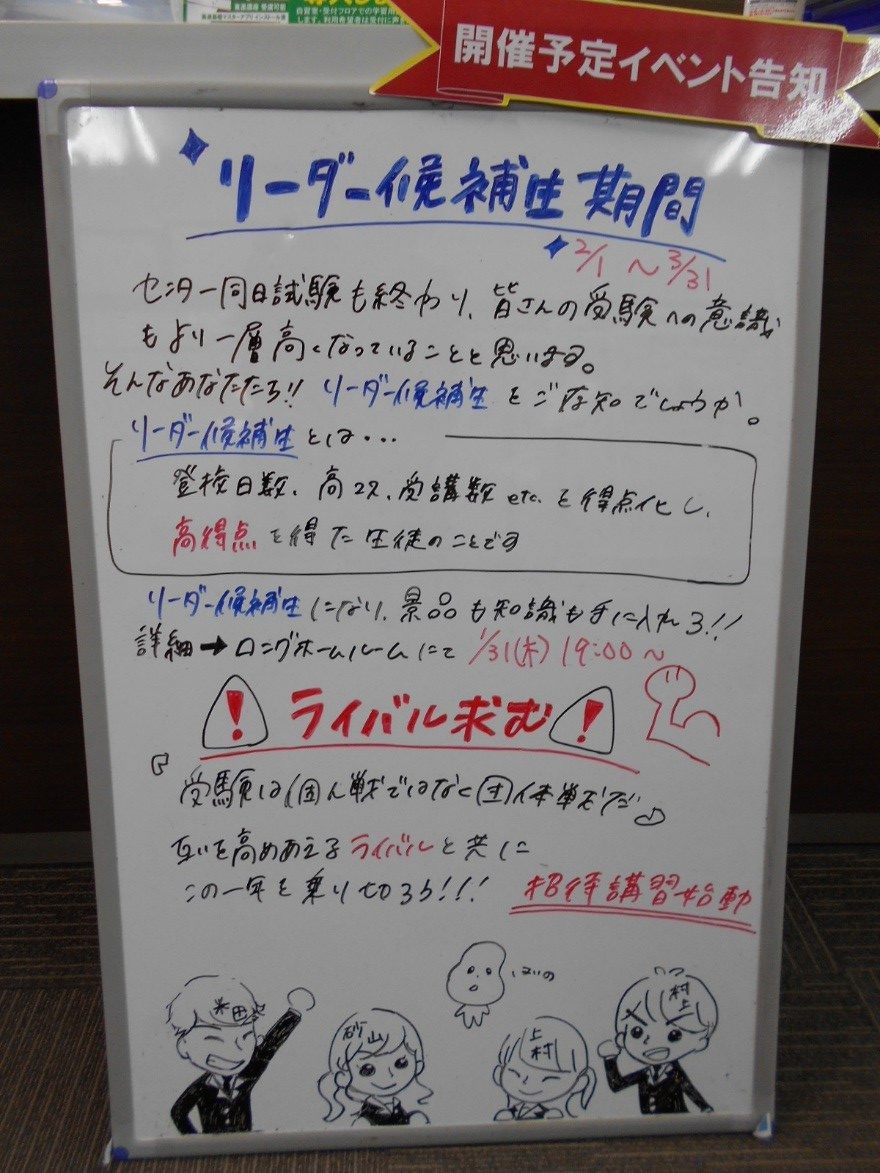 高速基礎マスターアプリインストール済
自習室・受付フロアでの学習用
します。利用希望者は受付に声を
開催予定イベント告知
リーダー候補生期間
2/1 〜 3/31
センター同日試験も終わり、皆さんの受験への意識
もより一層高くなっていることと思います。
そんなあなたたち!! リーダー候補生をご存知でしょうか。
リーダー候補生とは・・・
登校日数、高マス、受講数 etc. を得点化し、
高得点を得た生徒のことです
リーダー候補生になり、景品も知識も手に入れろ!!
詳細→ロングホームルームにて 1/31(木) 19:00〜
! ライバル求む !
『受験は個人戦ではなく団体戦だ』
互いを高めあえるライバルと共に
この一年を乗り切ろう!!! 招待講習始動
米田
砂山
上村
村上